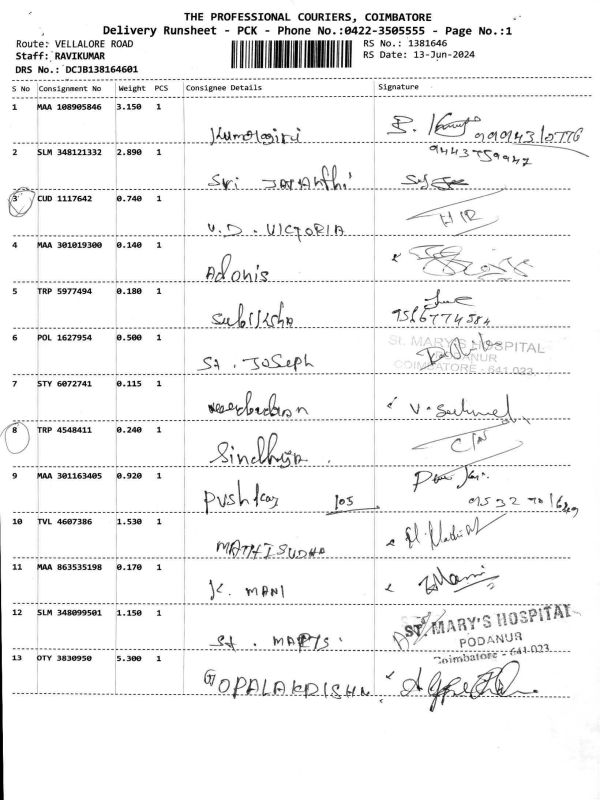 THE PROFESSIONAL COURIERS, COIMBATORE
Delivery Runsheet - PCK - Phone No.:0422-3505555 - Page No.:1
Route: VELLALORE ROAD
RS No.: 1381646
Staff: RAVIKUMAR
RS Date: 13-Jun-2024
DRS No.: DCJB138164601
S No Consignment No Weight PCS Consignee Details Signature
1 MAA 108905846 3.150 1
9443759947
2 SLM 348121332 2.890 1
Sri
3 CUD 1117642 0.740 1
V.D. VICTORIA
4 MAA 301019300 0.140 1
Adonis
5 TRP 5977494 0.180 1
6 POL 1627954 0.500 1
ST. MARY'S HOSPITAL
PODANUR
COIMBATORE - 641 023
St. Joseph
7 STY 6072741 0.115 1
8 TRP 4548411 0.240 1
Sindhuja
9 MAA 301163405 0.920 1
105
10 TVL 4607386 1.530 1
MATHISUDHA
11 MAA 863535198 0.170 1
K. MANI
12 SLM 348099501 1.150 1
ST. MARY'S HOSPITAL
PODANUR
Coimbatore - 641 023
St. MARYS
13 OTY 3830950 5.300 1
GOPALAKRISHN